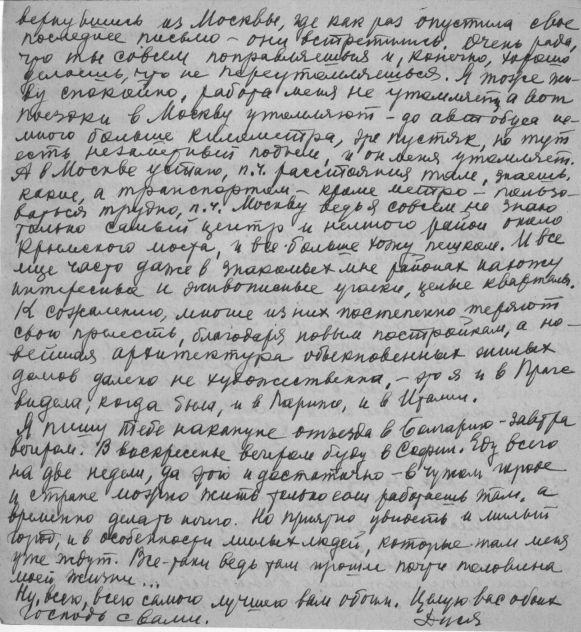 вернувшись из Москвы, где как раз опустила свое
последнее письмо – они встретились. Очень рада,
что ты совсем поправляешься и, конечно, хорошо
делаешь, что не переутомляешься. Я тоже жи-
ву спокойно, работа меня не утомляет, а вот
поездки в Москву утомляют – до автобуса не-
много больше километра, это пустяк, но тут
есть незаметный подъем, и он меня утомляет.
А в Москве устаю, п.ч. расстояния там, знаешь,
какие, а транспортом – кроме метро – пользо-
ваться трудно, п.ч. Москву ведь я совсем не знаю
только самый центр и немного район около
Крымского моста, и все больше хожу пешком. И все
еще часто даже в знакомых мне районах нахожу
интересные и живописные уголки, целые кварталы.
К сожалению, многие из них постепенно теряют
свою прелесть, благодаря новым постройкам, а но-
вейшая архитектура обыкновенных жилых
домов далеко не художественна, – это я и в Праге
видела, когда была, и в Париже, и в Италии.
Я пишу тебе накануне отъезда в Болгарию – завтра
вечером. В воскресенье вечером буду в Софии. Еду всего
на две недели, да этого и достаточно – в чужом городе
и стране можно жить только если работаешь там, а
временно делать нечего. Но приятно увидеть и милый
город, и в особенности милых людей, которые там меня
уже ждут. Все-таки ведь там прошла почти половина
моей жизни...
Ну, всего, всего самого лучшего вам обоим. Целую вас обоих
Господь с вами. Дуся